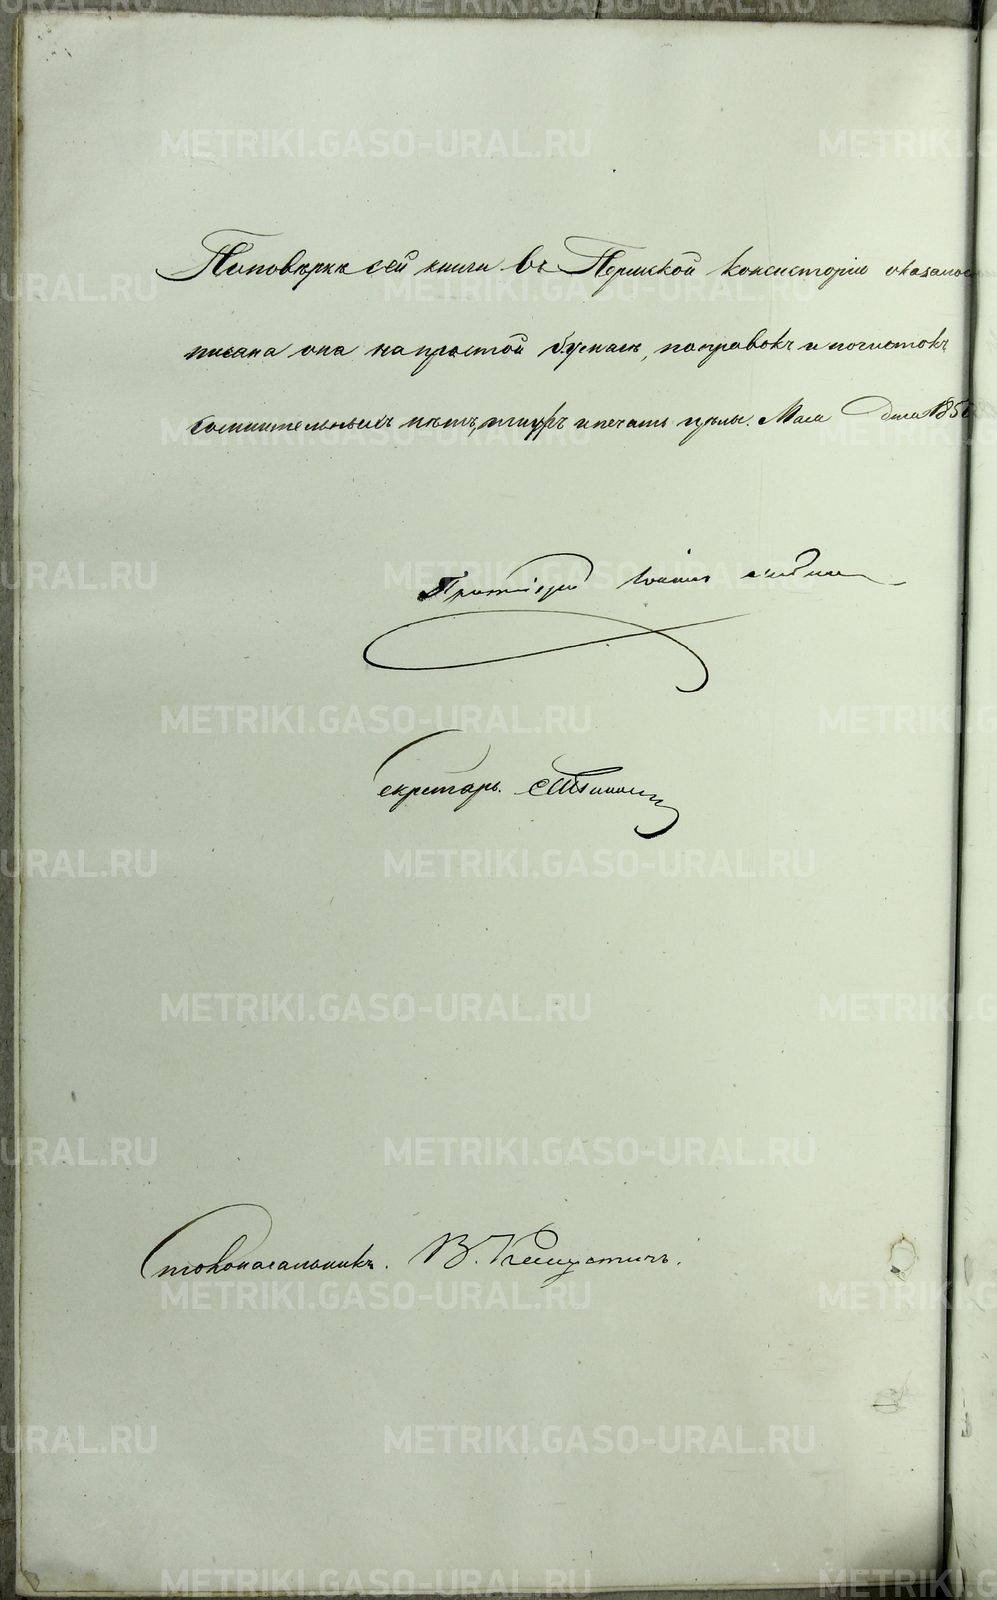 По повѣркѣ сей книги въ Пермской Консисторіи оказалос
писана она на простой бумагѣ, поправокъ и почистокъ
сомнительныхъ нѣтъ, шнуръ и печать цѣлы. Мая дня 185
Протоіерей Іоаннъ
Секретарь.
Столоначальникъ. В.
METRIKI.GASO-URAL.RU